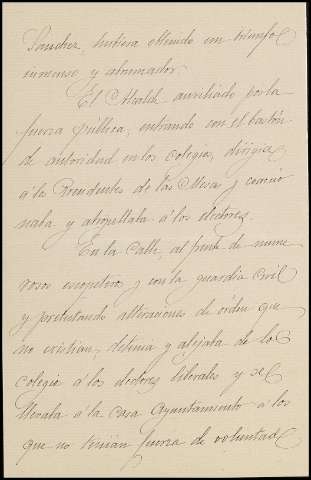 Sánchez, hubiera obtenido un triunfo
inmenso y abrumador.
El Alcalde auxiliado por la
fuerza pública, entrando con el bastón
de autoridad en los colegios, dirigíase
á los Presidentes de las Mesas y coaccio
naba y atropellaba á los electores.
En la calle, al frente de nume
rosos escopeteros y con la guardia civil
y pretextando alteraciones de órden que
no existian, detenia y alejaba de los
colegios á los electores liberales y se
llevaba á la Casa Ayuntamiento á los
que no tenían fuerza de voluntad